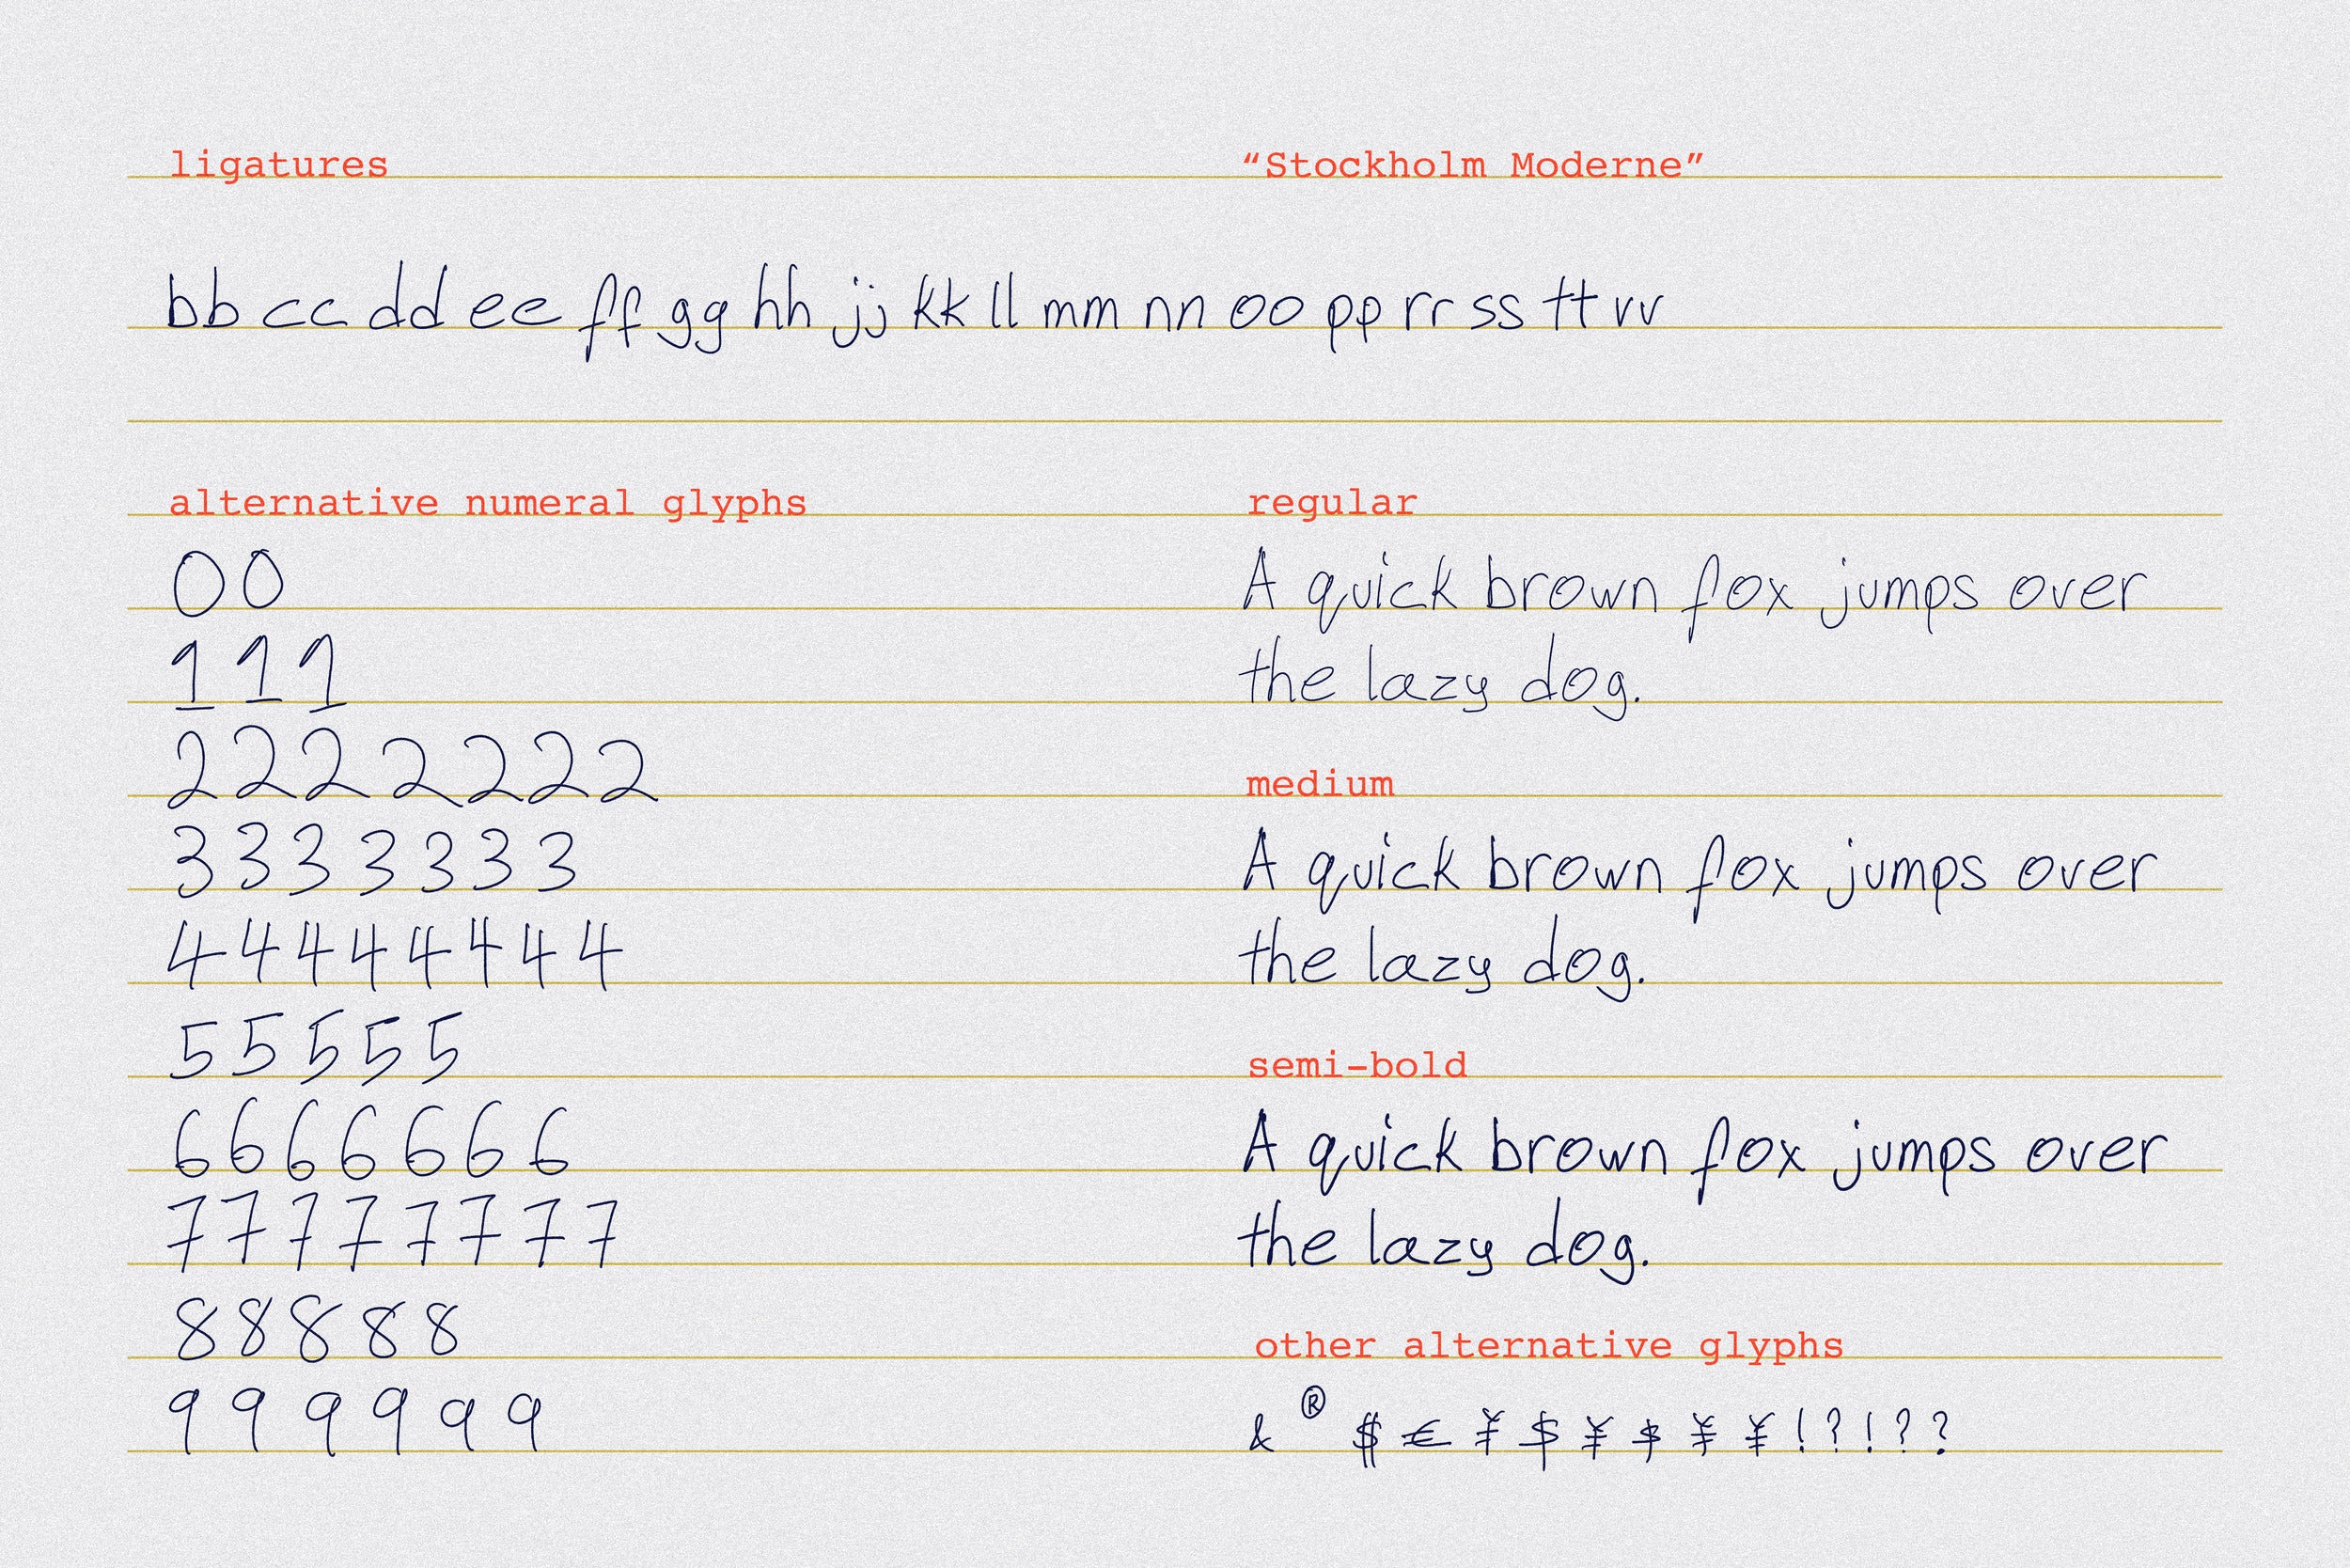 ligatures
“Stockholm Moderne”
bb cc dd ee ff gg hh jj kk ll mm nn oo pp rr ss tt vv
alternative numeral glyphs
0 0
1 1 1
2 2 2 2 2 2 2
3 3 3 3 3 3 3
4 4 4 4 4 4 4 4
5 5 5 5 5
6 6 6 6 6 6 6
7 7 7 7 7 7 7 7
8 8 8 8 8
9 9 9 9 9 9
regular
A quick brown fox jumps over
the lazy dog.
medium
A quick brown fox jumps over
the lazy dog.
semi-bold
A quick brown fox jumps over
the lazy dog.
other alternative glyphs
& ® $ € ¥ $ ¥ $ ¥ ¥ ! ? ! ? ?